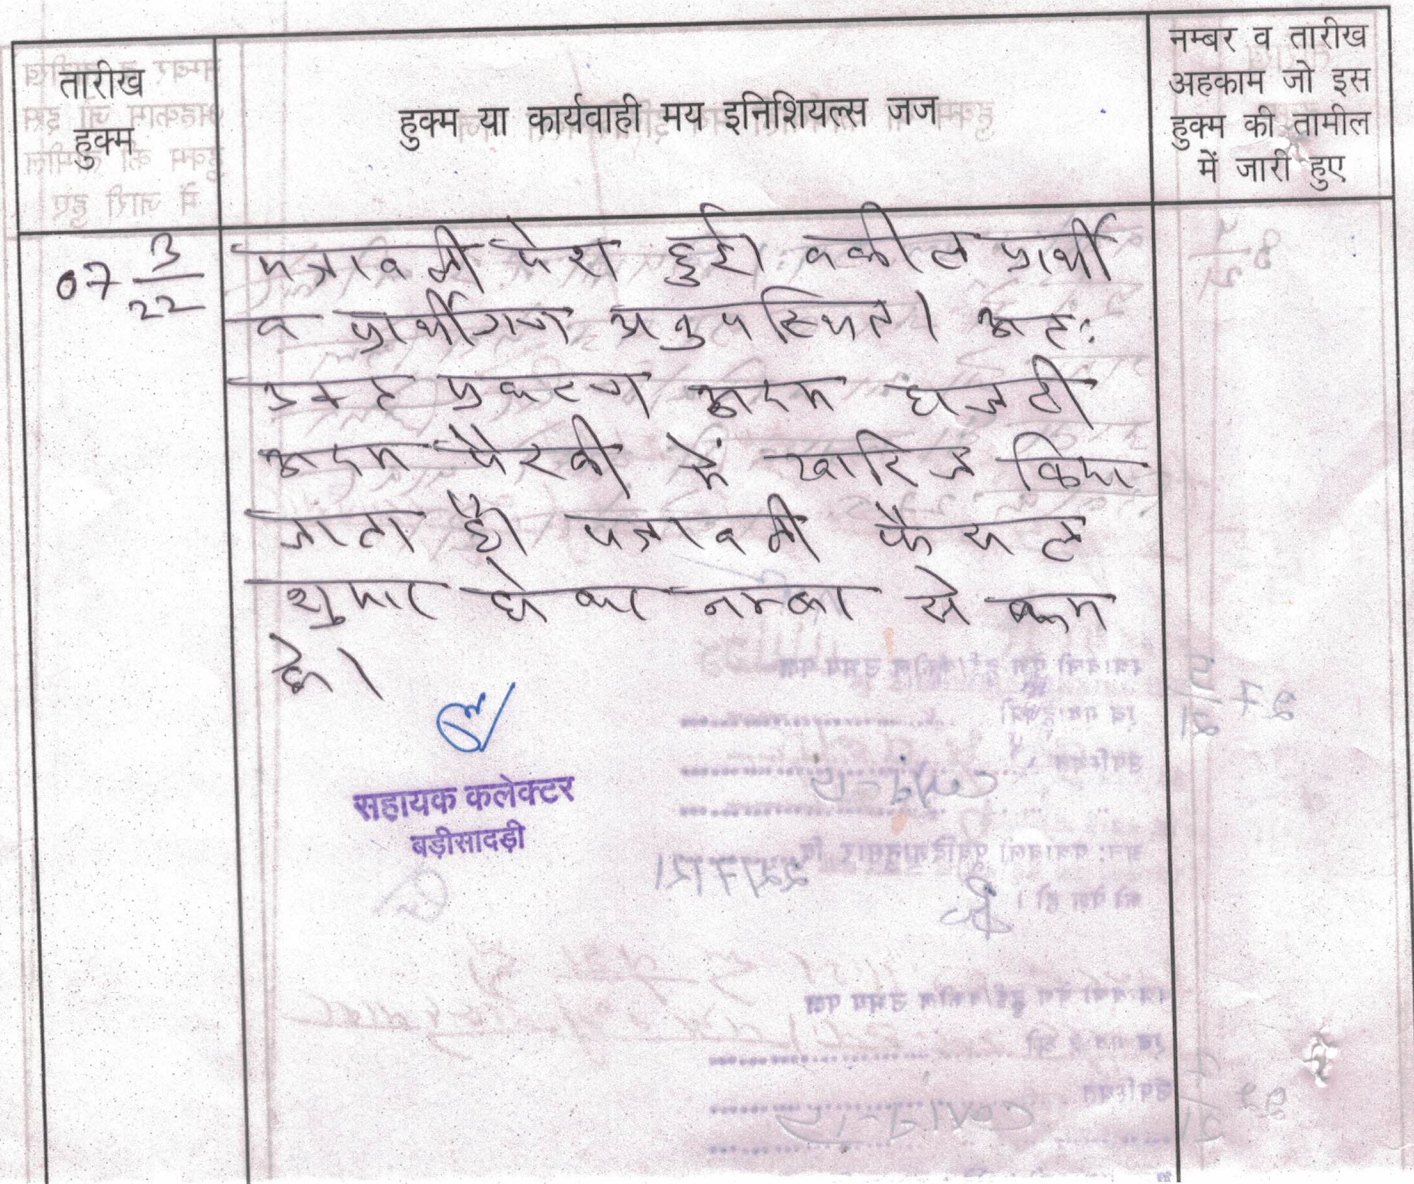 तारीख
हुक्म
हुक्म या कार्यवाही मय इनिशियल्स जज
नम्बर व तारीख
अहकाम जो इस
हुक्म की तामील
में जारी हुए
07 3/22
पत्रावली पेश हुई। वकील प्रार्थी
व प्रार्थीगण अनुपस्थित। अतः
उक्त प्रकरण अदम हाजरी
अदम पैरवी में खारिज किया
जाता है। पत्रावली फैसल
शुमार होकर नम्बर से कम
हो।
सहायक कलेक्टर
बड़ीसादड़ी